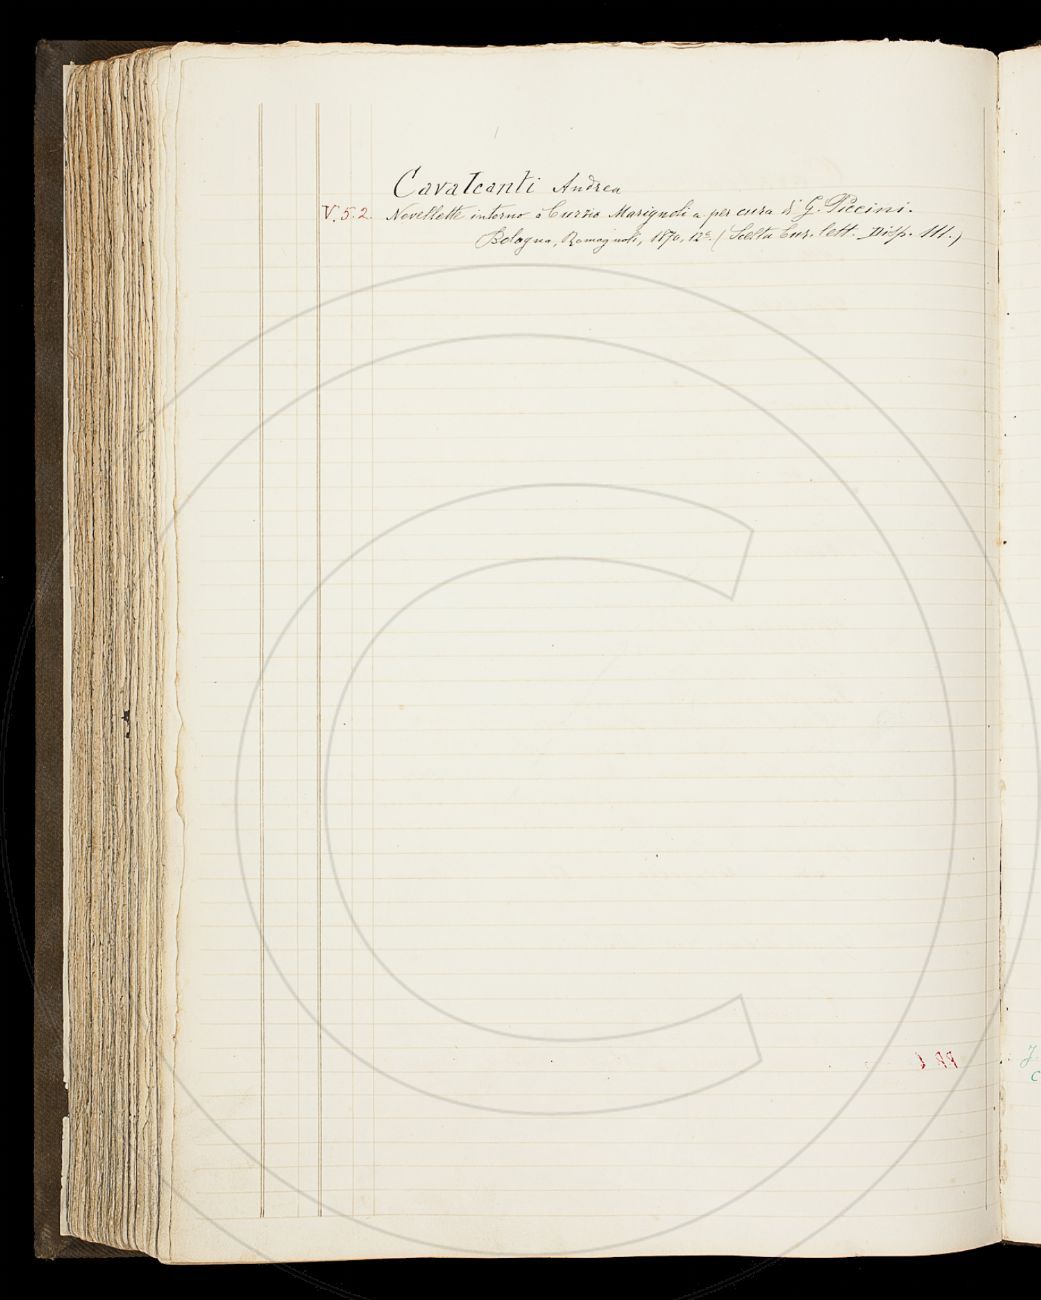 Cavalcanti Andrea
V. 5. 2. Novellette intorno a Curzio Marignoli a per cura di G. Piccini.
Bologna, Romagnoli, 1870, 12°. (Scelta Cur. lett. Disp. 111.)